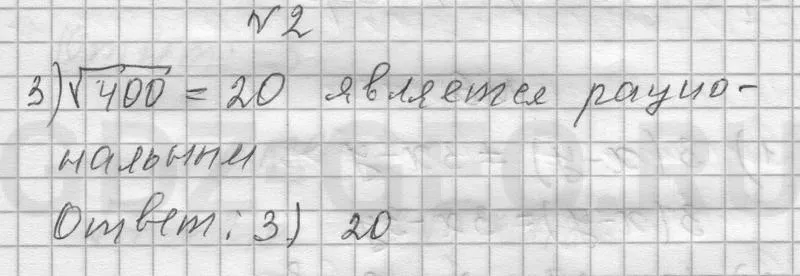 №2
3) √400 = 20 является рацио-
нальным
Ответ: 3) 20